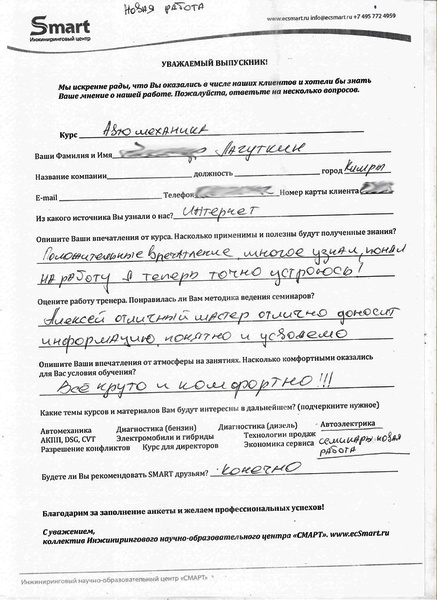 новая работа
Smart
Инжиниринговый центр
www.ecsmart.ru info@ecsmart.ru +7 495 772 4959
УВАЖАЕМЫЙ ВЫПУСКНИК!
Мы искренне рады, что Вы оказались в числе наших клиентов и хотели бы знать
Ваше мнение о нашей работе. Пожалуйста, ответьте на несколько вопросов.
Курс Автомеханика
Ваши Фамилия и Имя Лагуткин
Название компании должность город Кимры
E-mail Телефон Номер карты клиента
Из какого источника Вы узнали о нас? Интернет
Опишите Ваши впечатления от курса. Насколько применимы и полезны будут полученные знания?
Положительные впечатление, многое узнал, понял
на работу я теперь точно устроюсь!
Оцените работу тренера. Понравилась ли Вам методика ведения семинаров?
Алексей отличный мастер отлично доносит
информацию понятно и усвояемо
Опишите Ваши впечатления от атмосферы на занятиях. Насколько комфортными оказались
для Вас условия обучения?
Всё круто и комфортно!!!
Какие темы курсов и материалов Вам будут интересны в дальнейшем? (подчеркните нужное)
Автомеханика Диагностика (бензин) Диагностика (дизель) Автоэлектрика
АКПП, DSG, CVT Электромобили и гибриды Технологии продаж семинары новая
Разрешение конфликтов Курс для директоров Экономика сервиса работа
Будете ли Вы рекомендовать SMART друзьям? Конечно
Благодарим за заполнение анкеты и желаем профессиональных успехов!
С уважением,
коллектив Инжинирингового научно-образовательного центра «СМАРТ». www.ecSmart.ru
Инжиниринговый научно-образовательный центр «СМАРТ»